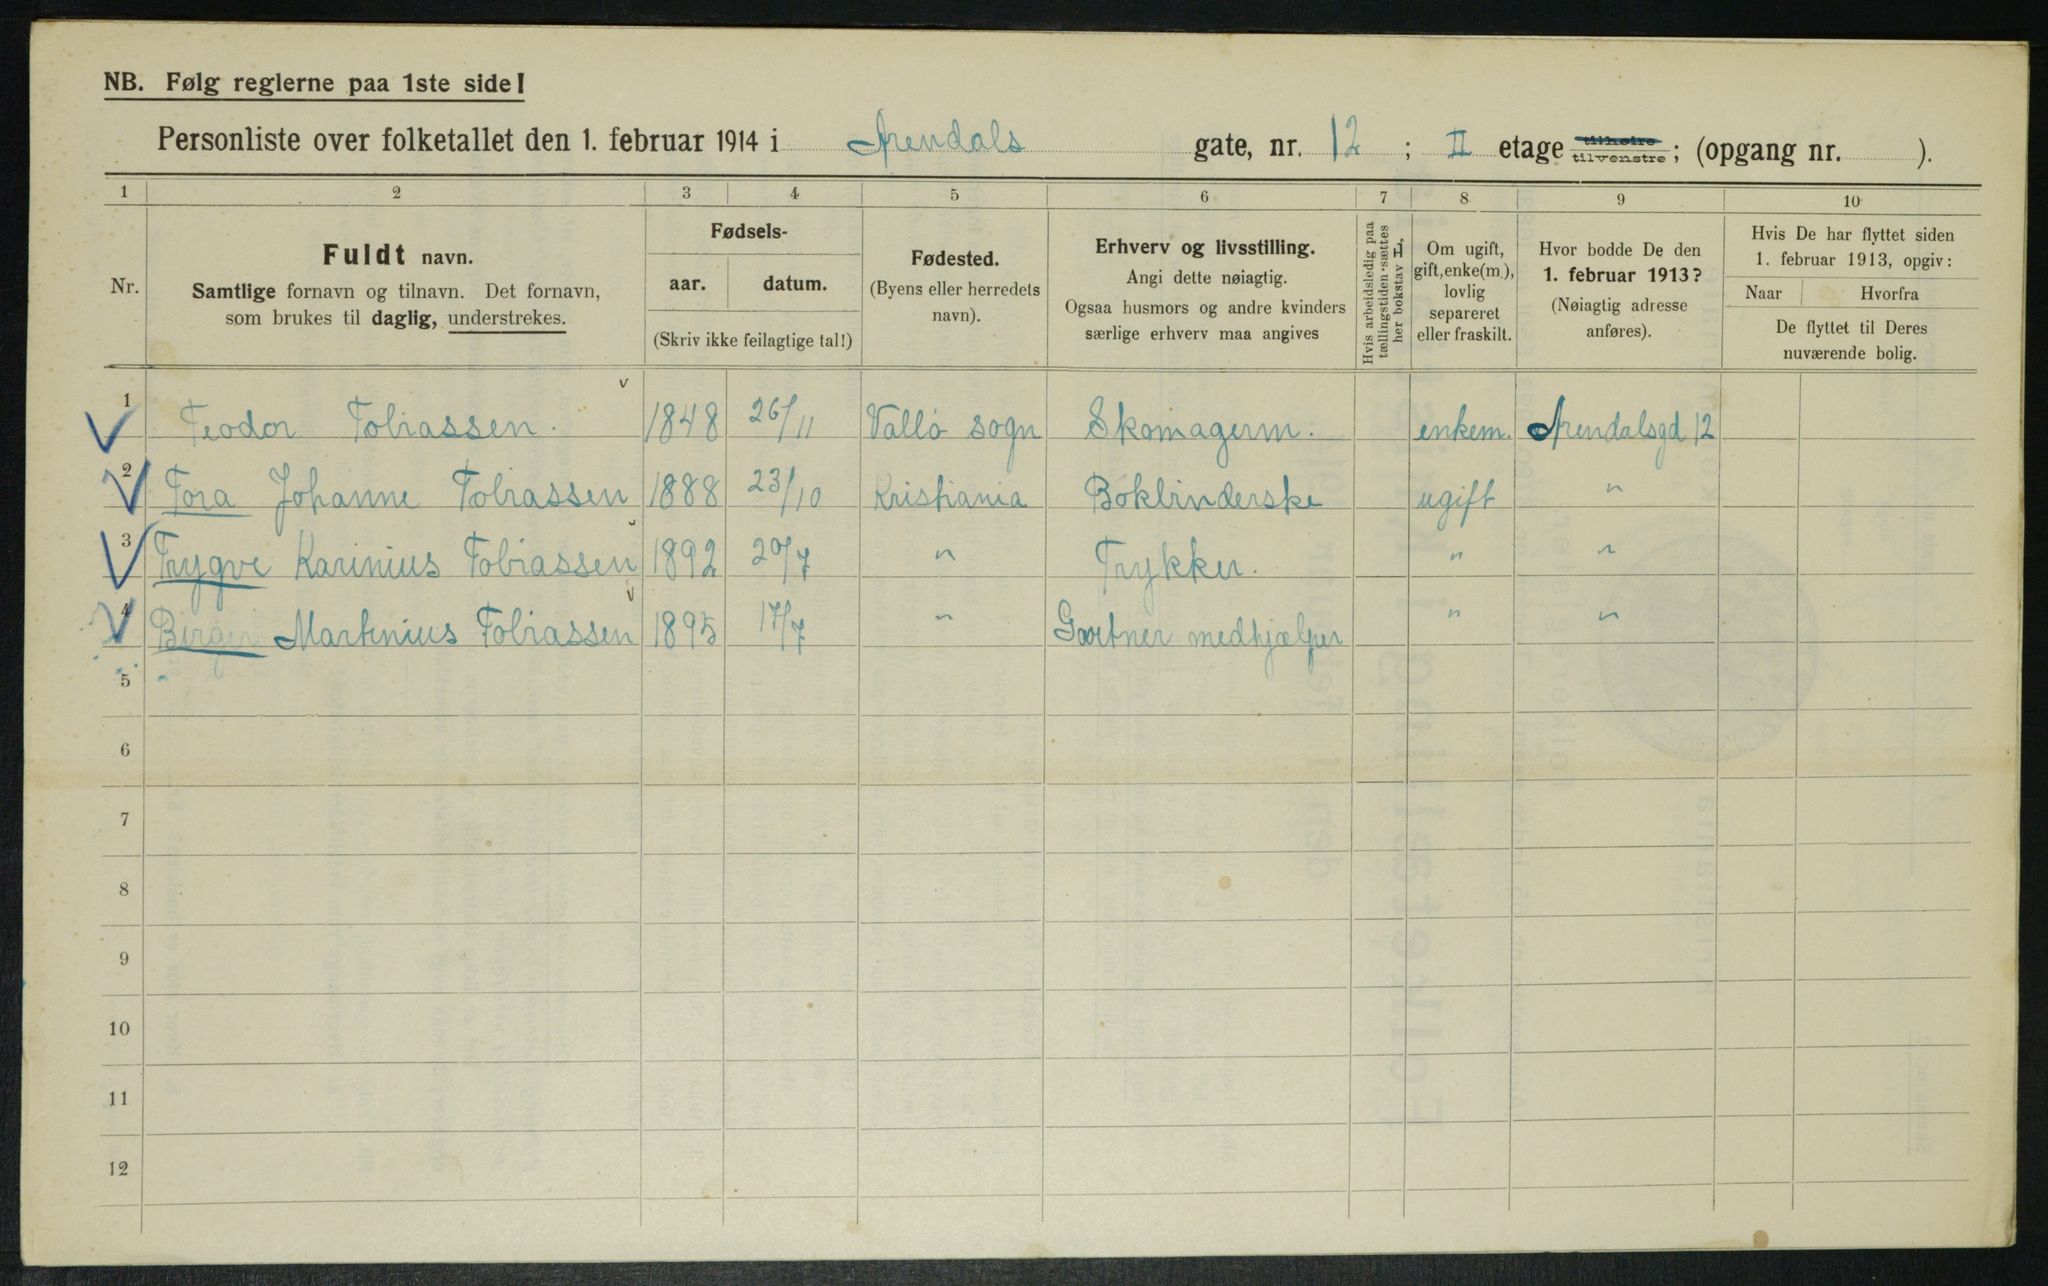 NB. Følg reglerne paa 1ste side!
Personliste over folketallet den 1. februar 1914 i Arendals gate, nr. 12 ; II etage tilhøire tilvenstre ; (opgang nr. ).
1 2 3 4 5 6 7 8 9 10
Nr.
Fuldt navn.
Samtlige fornavn og tilnavn. Det fornavn,
som brukes til daglig, understrekes.
Fødsels-
aar. datum.
(Skriv ikke feilagtige tal!)
Fødested.
(Byens eller herredets
navn).
Erhverv og livsstilling.
Angi dette nøiagtig.
Ogsaa husmors og andre kvinders
særlige erhverv maa angives
Hvis arbeidsledig paa
tællingstiden sættes
her bokstav L.
Om ugift,
gift, enke(m.),
lovlig
separeret
eller fraskilt.
Hvor bodde De den
1. februar 1913?
(Nøiagtig adresse
anføres).
Hvis De har flyttet siden
1. februar 1913, opgiv:
Naar Hvorfra
De flyttet til Deres
nuværende bolig.
1 Teodor Tobiassen. 1848 26/11 Valló sogn Skomagerm. enkem. Arendalsgd 12
2 Tora Johanne Tobiassen 1888 23/10 Kristiania Bokbinderske ugift "
3 Trygve Karinius Tobiassen 1892 20/7 " Trykker. " "
4 Birger Martinius Tobiassen 1895 17/7 " Gartner medhjælper " "
5
6
7
8
9
10
11
12